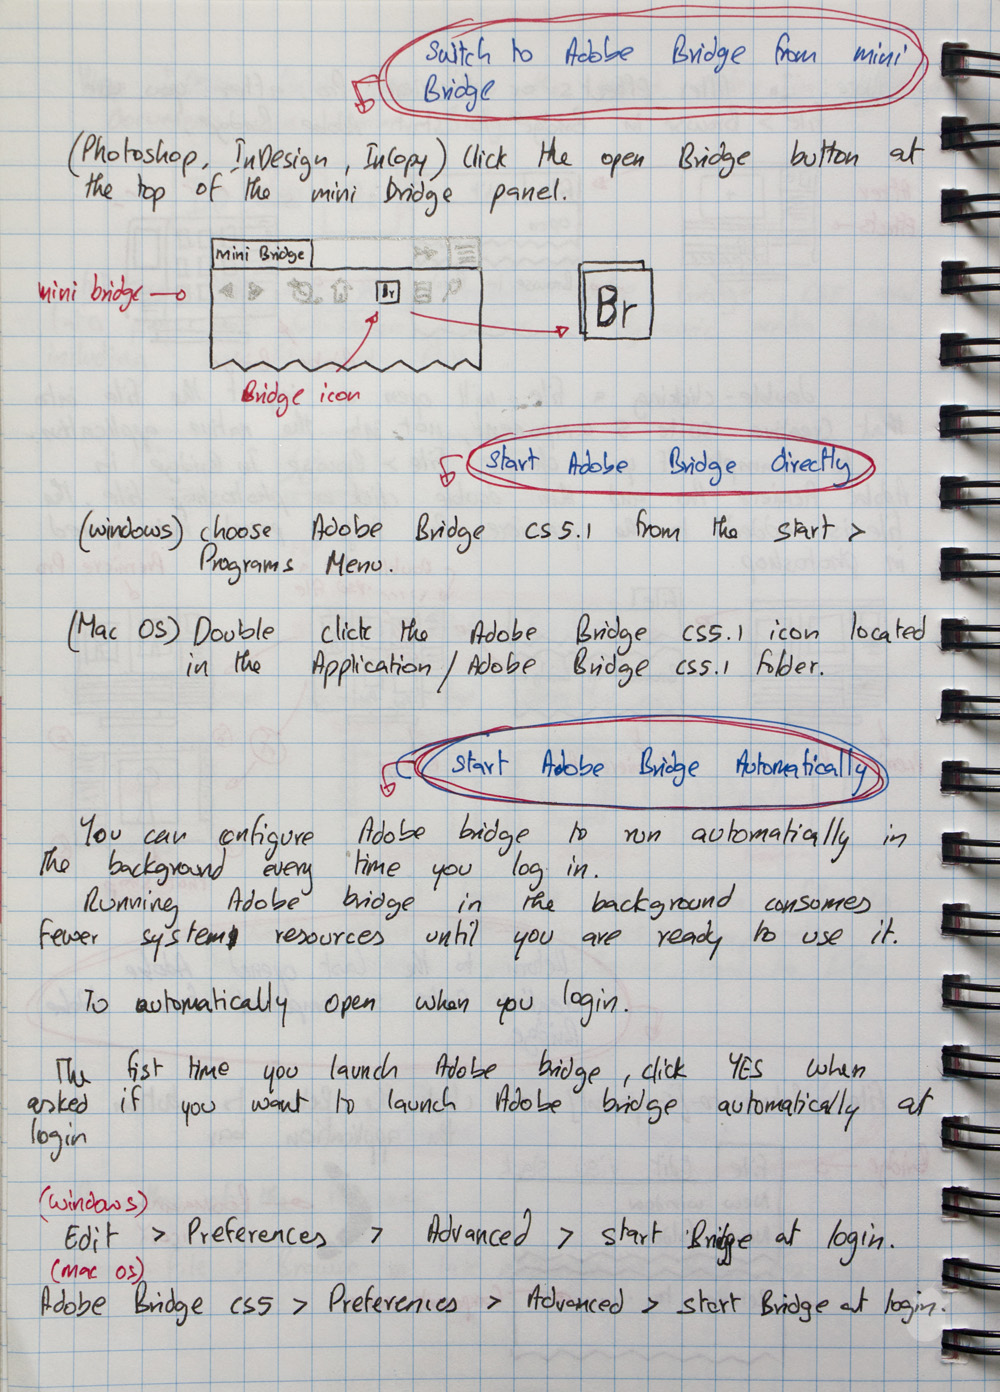 Switch to Adobe Bridge from mini
Bridge
(Photoshop, InDesign, InCopy) Click the open Bridge button at
the top of the mini Bridge panel.
mini Bridge
mini bridge
Br
Br
Bridge icon
Start Adobe Bridge directly
(windows) choose Adobe Bridge CS 5.1 from the start >
Programs Menu.
(Mac OS) Double click the Adobe Bridge CS5.1 icon located
in the Application / Adobe Bridge CS5.1 folder.
Start Adobe Bridge Automatically
You can configure Adobe bridge to run automatically in
the background every time you log in.
Running Adobe bridge in the background consomes
fewer system resources until you are ready to use it.
To automatically open when you login.
The fist time you launch Adobe bridge, click YES when
asked if you want to launch Adobe bridge automatically at
login
(windows)
Edit > Preferences > Advanced > start Bridge at login.
(mac os)
Adobe Bridge CS5 > Preferences > Advanced > start Bridge at login.